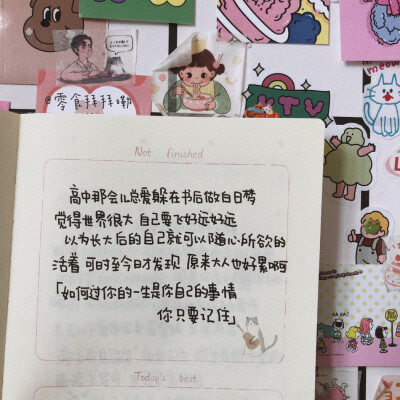 @零食拜拜嘞
KTV
meow
Not finished
高中那会儿总爱躲在书后做白日梦
觉得世界很大 自己要飞好远好远
以为长大后的自己就可以随心所欲的
活着 可时至今日才发现 原来大人也好累啊
「如何过你的一生是你自己的事情
你只要记住」
Today's best